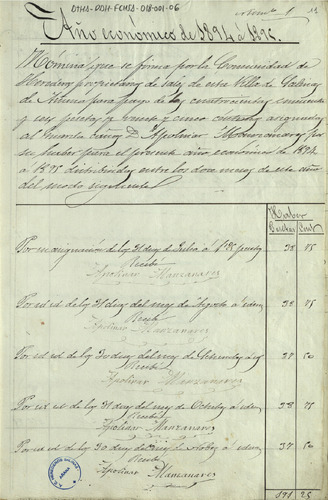 DTHS-DDH-FCHSA-018-001-06
Año económico de 1894 á 1895.
Nómina que se firma por la Comunidad de
Herederos propietarios de Sales de esta Villa de Salinas
de Añana para pago de los cuatrocientos cincuenta
y seis pesetas y veinte y cinco centimos asignadas
al Guarda Salinas D. Apolinar Manzanares por
su haber para el presente año economico de 1894
á 1895 distribuidas entre los doce meses de este año
del modo siguiente
Haber
Pesetas Cent
Por su asignación de los 31 dias de Julio á 1'25 pesetas 38 75
Recibí
Apolinar Manzanares
Por id id de los 31 dias del mes de Agosto á idem 38 75
Recibí
Apolinar Manzanares
Por id id de los 30 dias del mes de Setiembre á id 37 50
Recibí
Apolinar Manzanares
Por id id de los 31 dias del mes de Octubre á idem 38 75
Recibí
Apolinar Manzanares
Por id id de los 30 dias de mes de Nobre á idem 37 50
Recibí
Apolinar Manzanares
191 25